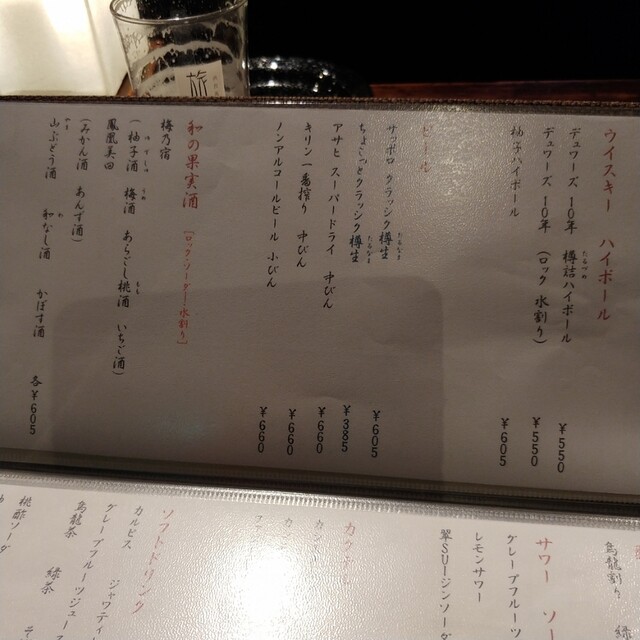 旅
ウイスキー ハイボール
デュワーズ 10年 樽詰ハイボール ¥550
たるづめ
デュワーズ 10年 (ロック 水割り) ¥550
柚子ハイボール ¥605
ビール
サッポロ クラッシク樽生 ¥605
たるなま
ちょこっとクラッシク樽生 ¥385
たるなま
アサヒ スーパードライ 中びん ¥660
キリン一番搾り 中びん ¥660
ノンアルコールビール 小びん ¥660
和の果実酒 [ロック・ソーダー・水割り]
梅乃宿
(柚子酒 梅酒 あらごし桃酒 いちご酒)
ゆずしゅ うめ もも
鳳凰美田
(みかん酒 あんず酒)
山ぶどう酒 和なし酒 かぼす酒 各¥605
やま わ
烏龍割り 緑
サワー ソー
グレープフルーツ
レモンサワー
翠SUIジンソーダ
カクテル
ソフトドリンク
カルピス ジャワティー
グレープフルーツジュース
烏龍茶 緑茶
桃酢ソーダ